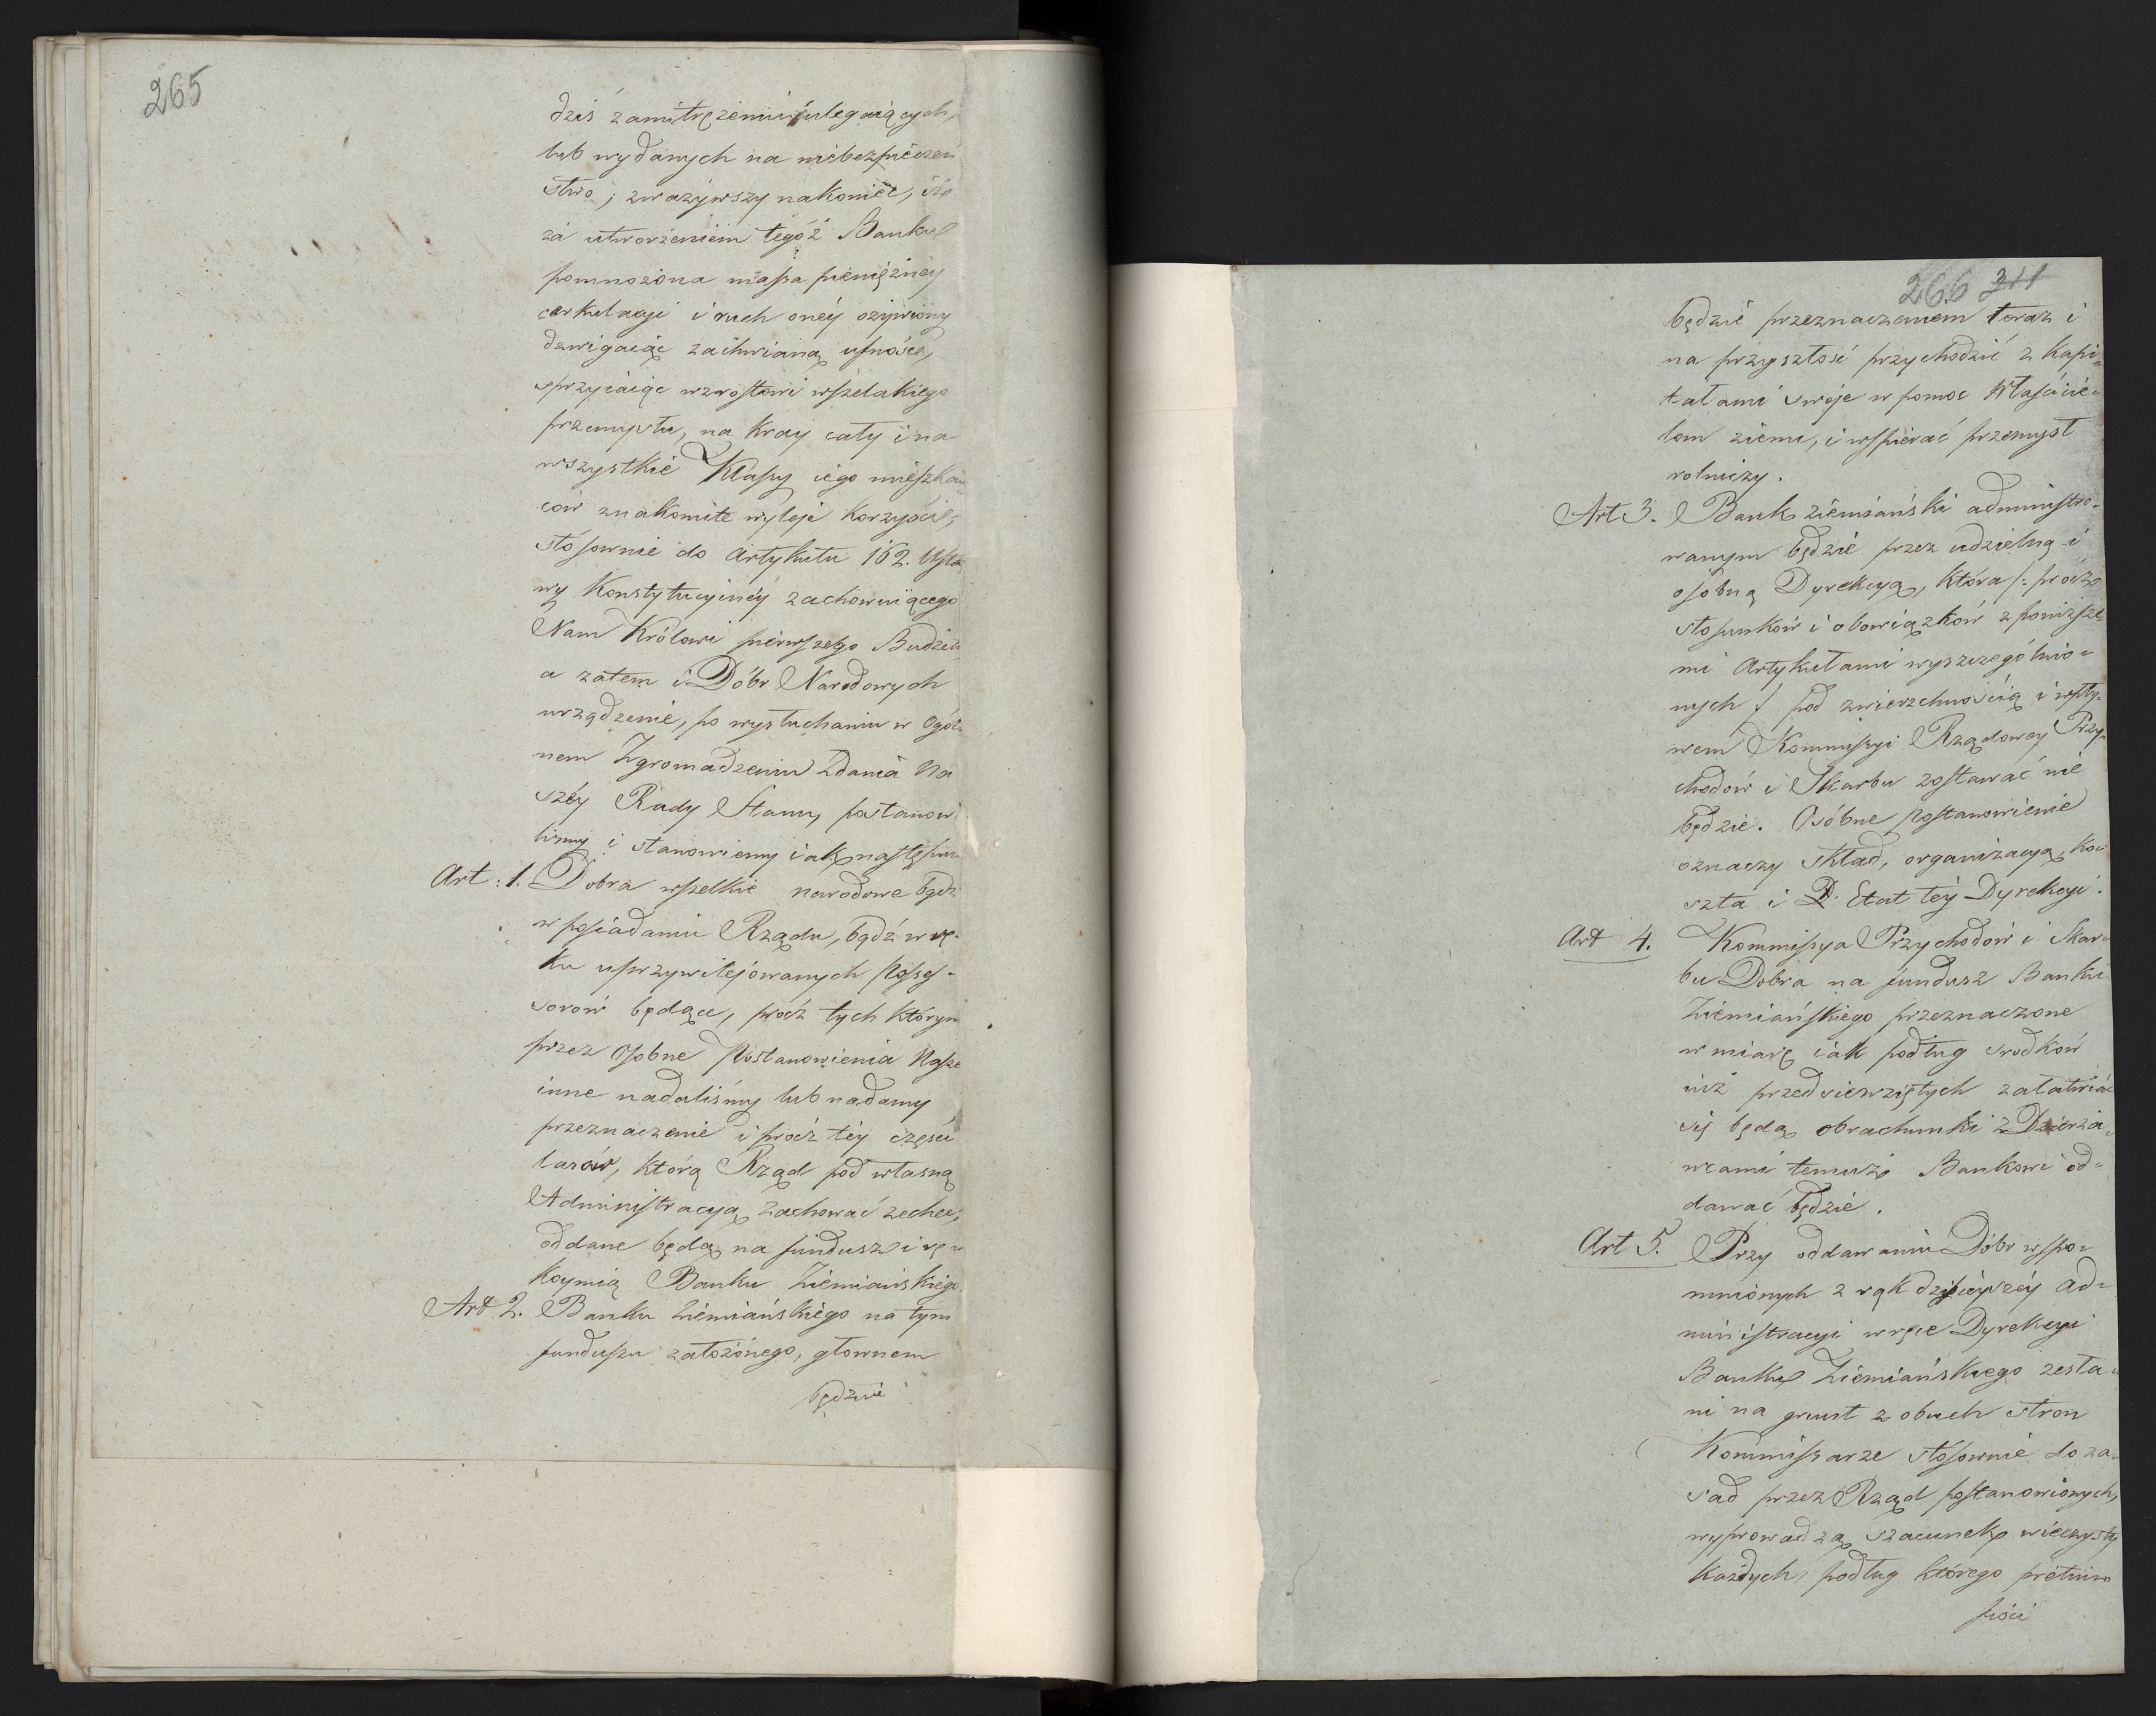 265
dziś zamitrężeniu ulegaiących,
lub wydanych na niebezpieczeń
stwo; zważywszy nakoniec, iż
za utworzeniem tegoż Banku
pomnożona massa pieniężnéy
cerkulacyi i ruch onéy ożywiony
dzwigaiąc zachwianą ufność,
sprzyiaiąc wzrostowi wszelakiego
przemysłu, na Kray cały i na
wszystkie Klassy iego mieszkań
ców znakomite wyleje korzyści;
stosownie do Artykułu 162. Usta
wy Konstytucyinéy zachowuiącego
Nam Królowi pierwszego Budżetu
a zatem i Dóbr Narodowych
urządzenie, po wysłuchaniu w Ogól
nem Zgromadzeniu Zdania Na
széy Rady Stanu, postanowi
liśmy i stanowiemy iak następuie
Art: 1. Dobra wszelkie narodowe bądz
w posiadaniu Rządu, bądź w rę-
ku uprzywilejowanych Posses-
sorów będące, prócz tych którym
przez Osobne Postanowienia Nasze
inne nadaliśmy lub nadamy
przeznaczenie i prócz téy części
lasów, którą Rząd pod własną
Administracyą zachować zechce,
oddane będą na fundusz i rę-
koymią Banku Ziemiańskiego
Art 2. Banku Ziemiańskiego na tym
funduszu założonego, głownem
będzie
266 311
będzie przeznaczeniem teraz i
na przyszłość przychodzić z Kapi-
tałami swoje w pomoc Właścicie-
lom ziemi, i wspierać przemysł
rolniczy.
Art 3. Bank ziemiański administro-
wanym będzie przez udzielną i
osobną Dyrekcyą, która /: prócz
stosunków i obowiązków z poniższe-
mi Artykułami wyszczególnio-
nych :/ pod zwierzchnością i wpły-
wem Kommissyi Rządowey Przy-
chodów i Skarbu zostawać nie
będzie. Osóbne Postanowienie
oznaczy skład, organizacyą, ko-
szta i Etat téy Dyrekcyi.
Art 4. Kommissya Przychodów i Skar-
bu Dobra na fundusz Banku
Ziemiańskiego przeznaczone
w miarę iak podług srodków
iuż przedsiewziętych załatwiać
się będą obrachunki z Dzierża-
wcami temuż Bankowi od-
dawać będzie.
Art 5. Przy oddawaniu Dóbr wspo-
mnionych z rąk dzisieyszéy Ad-
ministracyi w ręce Dyrekcyi
Banku Ziemiańskiego zesła-
ni na grunt z obuch stron
Kommissarze stósownie do za-
sad przez Rząd postanowionych,
wyprowadzą szacunek wieczysty
każdych podług którego